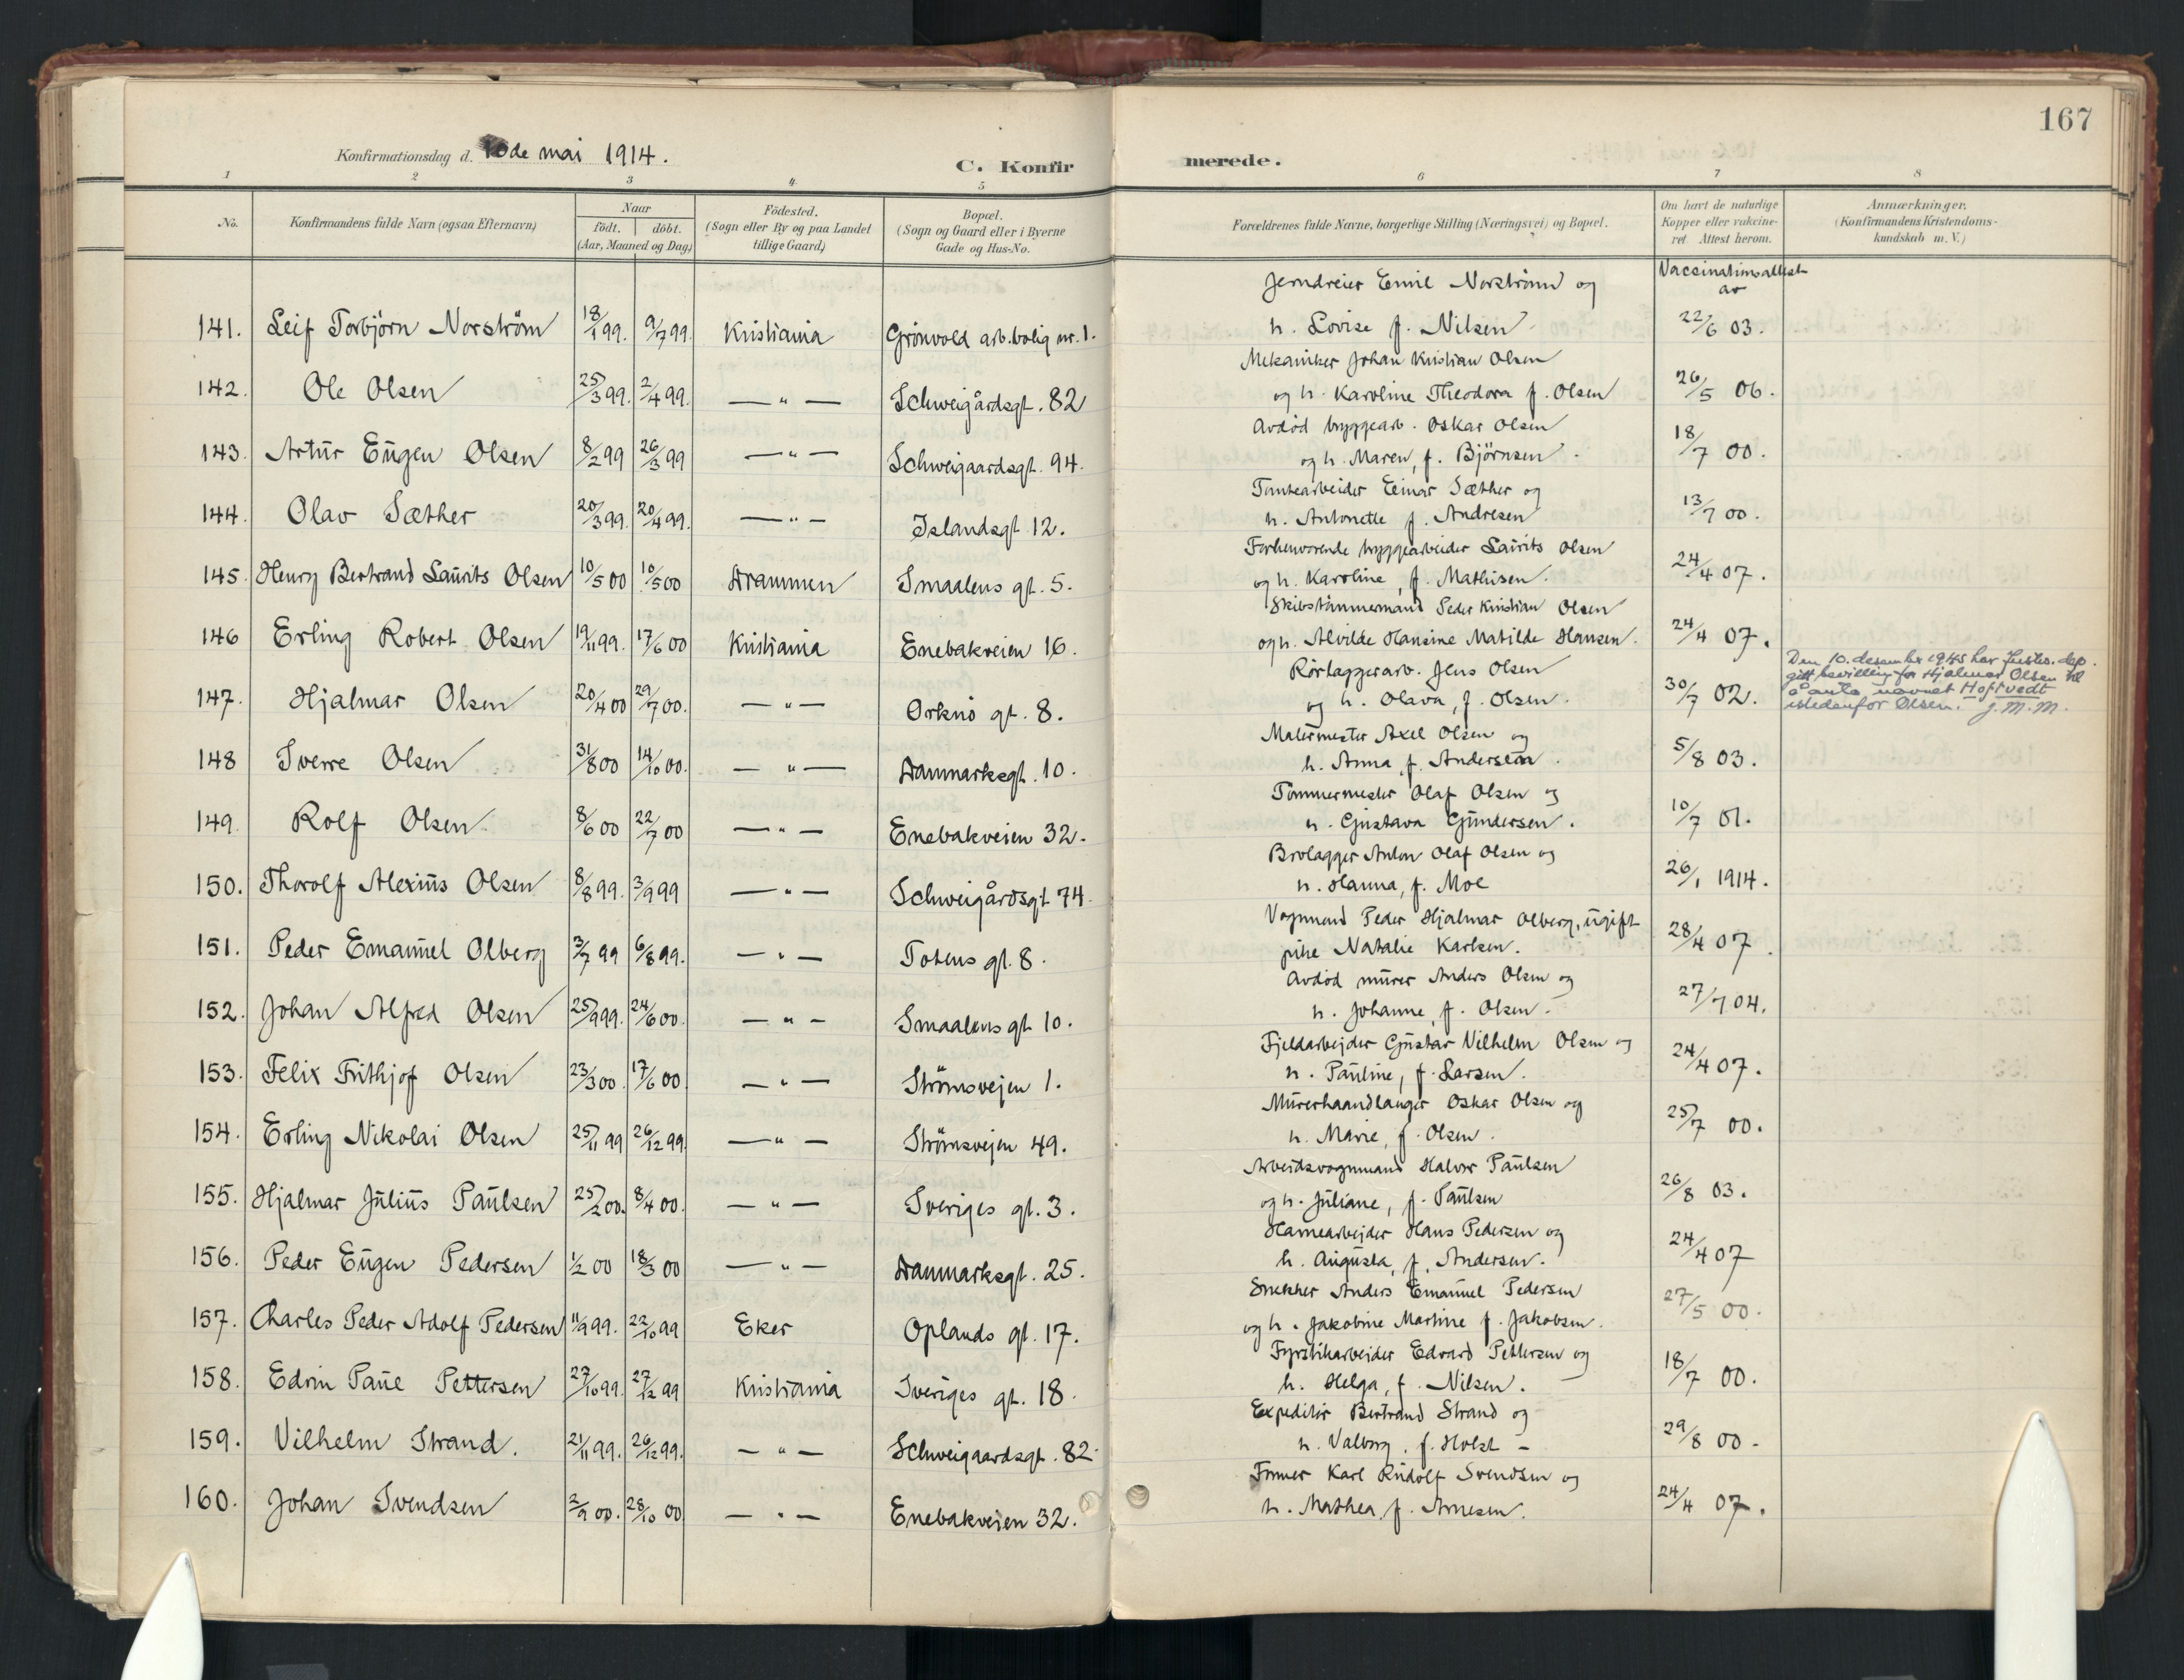 167
Konfirmationsdag d. 10de mai 1914.
C. Konfirmerede.
1 2 3 4 5 6 7 8
No. Konfirmandens fulde Navn (ogsaa Efternavn) Naar født. døbt. (Aar, Maaned og Dag) Fødested. (Sogn eller By og paa Landet tillige Gaard) Bopæl. (Sogn og Gaard eller i Byerne Gade og Hus-No. Forældrenes fulde Navne, borgerlige Stilling (Næringsvei) og Bopæl. Om havt de naturlige Kopper eller vakcineret Attest herom. Anmærkninger. (Konfirmandens Kristendomskundskab m. V.)
Vaccinationsattest av
141. Leif Torbjörn Norström 18/1 99. 9/7 99. Kristiania Grönvold arb.bolig nr. 1. Jerndreier Emil Norström og h. Lovise f. Nilsen 22/6 03.
142. Ole Olsen 25/3 99. 2/4 99. — " — Schweigårdsgt. 82 Mekaniker Johan Kristian Olsen og h. Karoline Theodora f. Olsen 26/5 06.
143. Artur Eugen Olsen 8/2 99 26/3 99 — " — Schweigaardsgt. 94. Avdöd bryggearb. Oskar Olsen og h. Maren, f. Björnsen. 18/7 00.
144. Olav Sæther 20/3 99. 20/4 99. — " — Islandsgt. 12. Tomtearbeider Einar Sæther og h. Antonette f. Andresen 13/7 00.
145. Henry Bertrand Laurits Olsen 10/5 00 10/5 00 Drammen Smaalens gt. 5. Forhenværende bryggearbeider Laurits Olsen og h. Karoline, f. Mathisen. 24/4 07.
146 Erling Robert Olsen 19/11 99. 17/6 00 Kristiania Enebakveien 16. Skibstömmermand Peder Kristian Olsen og h. Alvilde Hansine Matilde Hansen. 24/4 07.
147. Hjalmar Olsen 20/4 00 29/7 00. — " — Orknö gt. 8. Rörlæggerarb. Jens Olsen og h. Olava, f. Olsen. 30/7 02. Den 10. desember 1945 har Justis.dep. gitt bevilling for Hjalmar Olsen til å anta navnet Hoftvedt istedenfor Olsen. J.M.M.
148 Sverre Olsen 31/8 00 14/10 00. — " — Danmarksgt. 10. Malermester Axel Olsen og h. Anna, f. Andersen. 5/8 03.
149. Rolf Olsen 8/6 00 22/7 00 — " — Enebakveien 32. Tömmermester Olaf Olsen og h. Gustava Gundersen. 10/7 01.
150. Thorolf Alexius Olsen 8/8 99. 3/9 99 — " — Schweigårdsgt 74. Brolægger Anton Olaf Olsen og h. Hanna, f. Moe 26/1 1914.
151. Peder Emanuel Olberg 3/7 99 6/8 99. — " — Totens gt. 8. Vognmand Peder Hjalmar Olberg, ugift pike Natalie Karlsen. 28/4 07.
152. Johan Alfred Olsen 25/9 99. 24/6 00. — " — Smaalens gt. 10. Avdöd murer Anders Olsen og h. Johanne, f. Olsen. 27/7 04.
153. Felix Frithjof Olsen 23/3 00. 17/6 00 — " — Strömsvejen 1. Fjeldarbejder Gustav Vilhelm Olsen og h. Pauline, f. Larsen. 24/4 07.
154. Erling Nikolai Olsen 25/11 99 26/12 99. — " — Strömsvejen 49. Murerhaandlanger Oskar Olsen og h. Marie, f. Olsen. 25/7 00.
155. Hjalmar Julius Paulsen 25/2 00. 8/4 00. — " — Sveriges gt. 3. Arbeidsvognmand Halvor Paulsen og h. Juliane, f. Paulsen 26/8 03.
156. Peder Eugen Pedersen 1/2 00 18/3 00 — " — Danmarksgt. 25. Havnearbejder Hans Pedersen og h. Augusta, f. Andersen. 24/4 07
157. Charles Peder Adolf Pedersen 11/9 99. 22/10 99 Eker Oplands gt. 17. Snekker Anders Emanuel Pedersen og h. Jakobine Martine f. Jakobsen. 27/5 00.
158. Edvin Paue Pettersen 27/10 99. 27/12 99 Kristiania Sveriges gt. 18. Fyrstikarbeider Edvard Pettersen og h. Helga, f. Nilsen. 18/7 00.
159. Vilhelm Strand. 21/11 99. 26/12 99. — " — Schweigaardsgt. 82. Expeditör Bertrand Strand og h. Valborg, f. Holst – 29/8 00.
160. Johan Svendsen 2/9 00. 28/10 00 — " — Enebakveien 32. Former Karl Rudolf Svendsen og h. Mathea, f. Arnesen. 24/4 07.